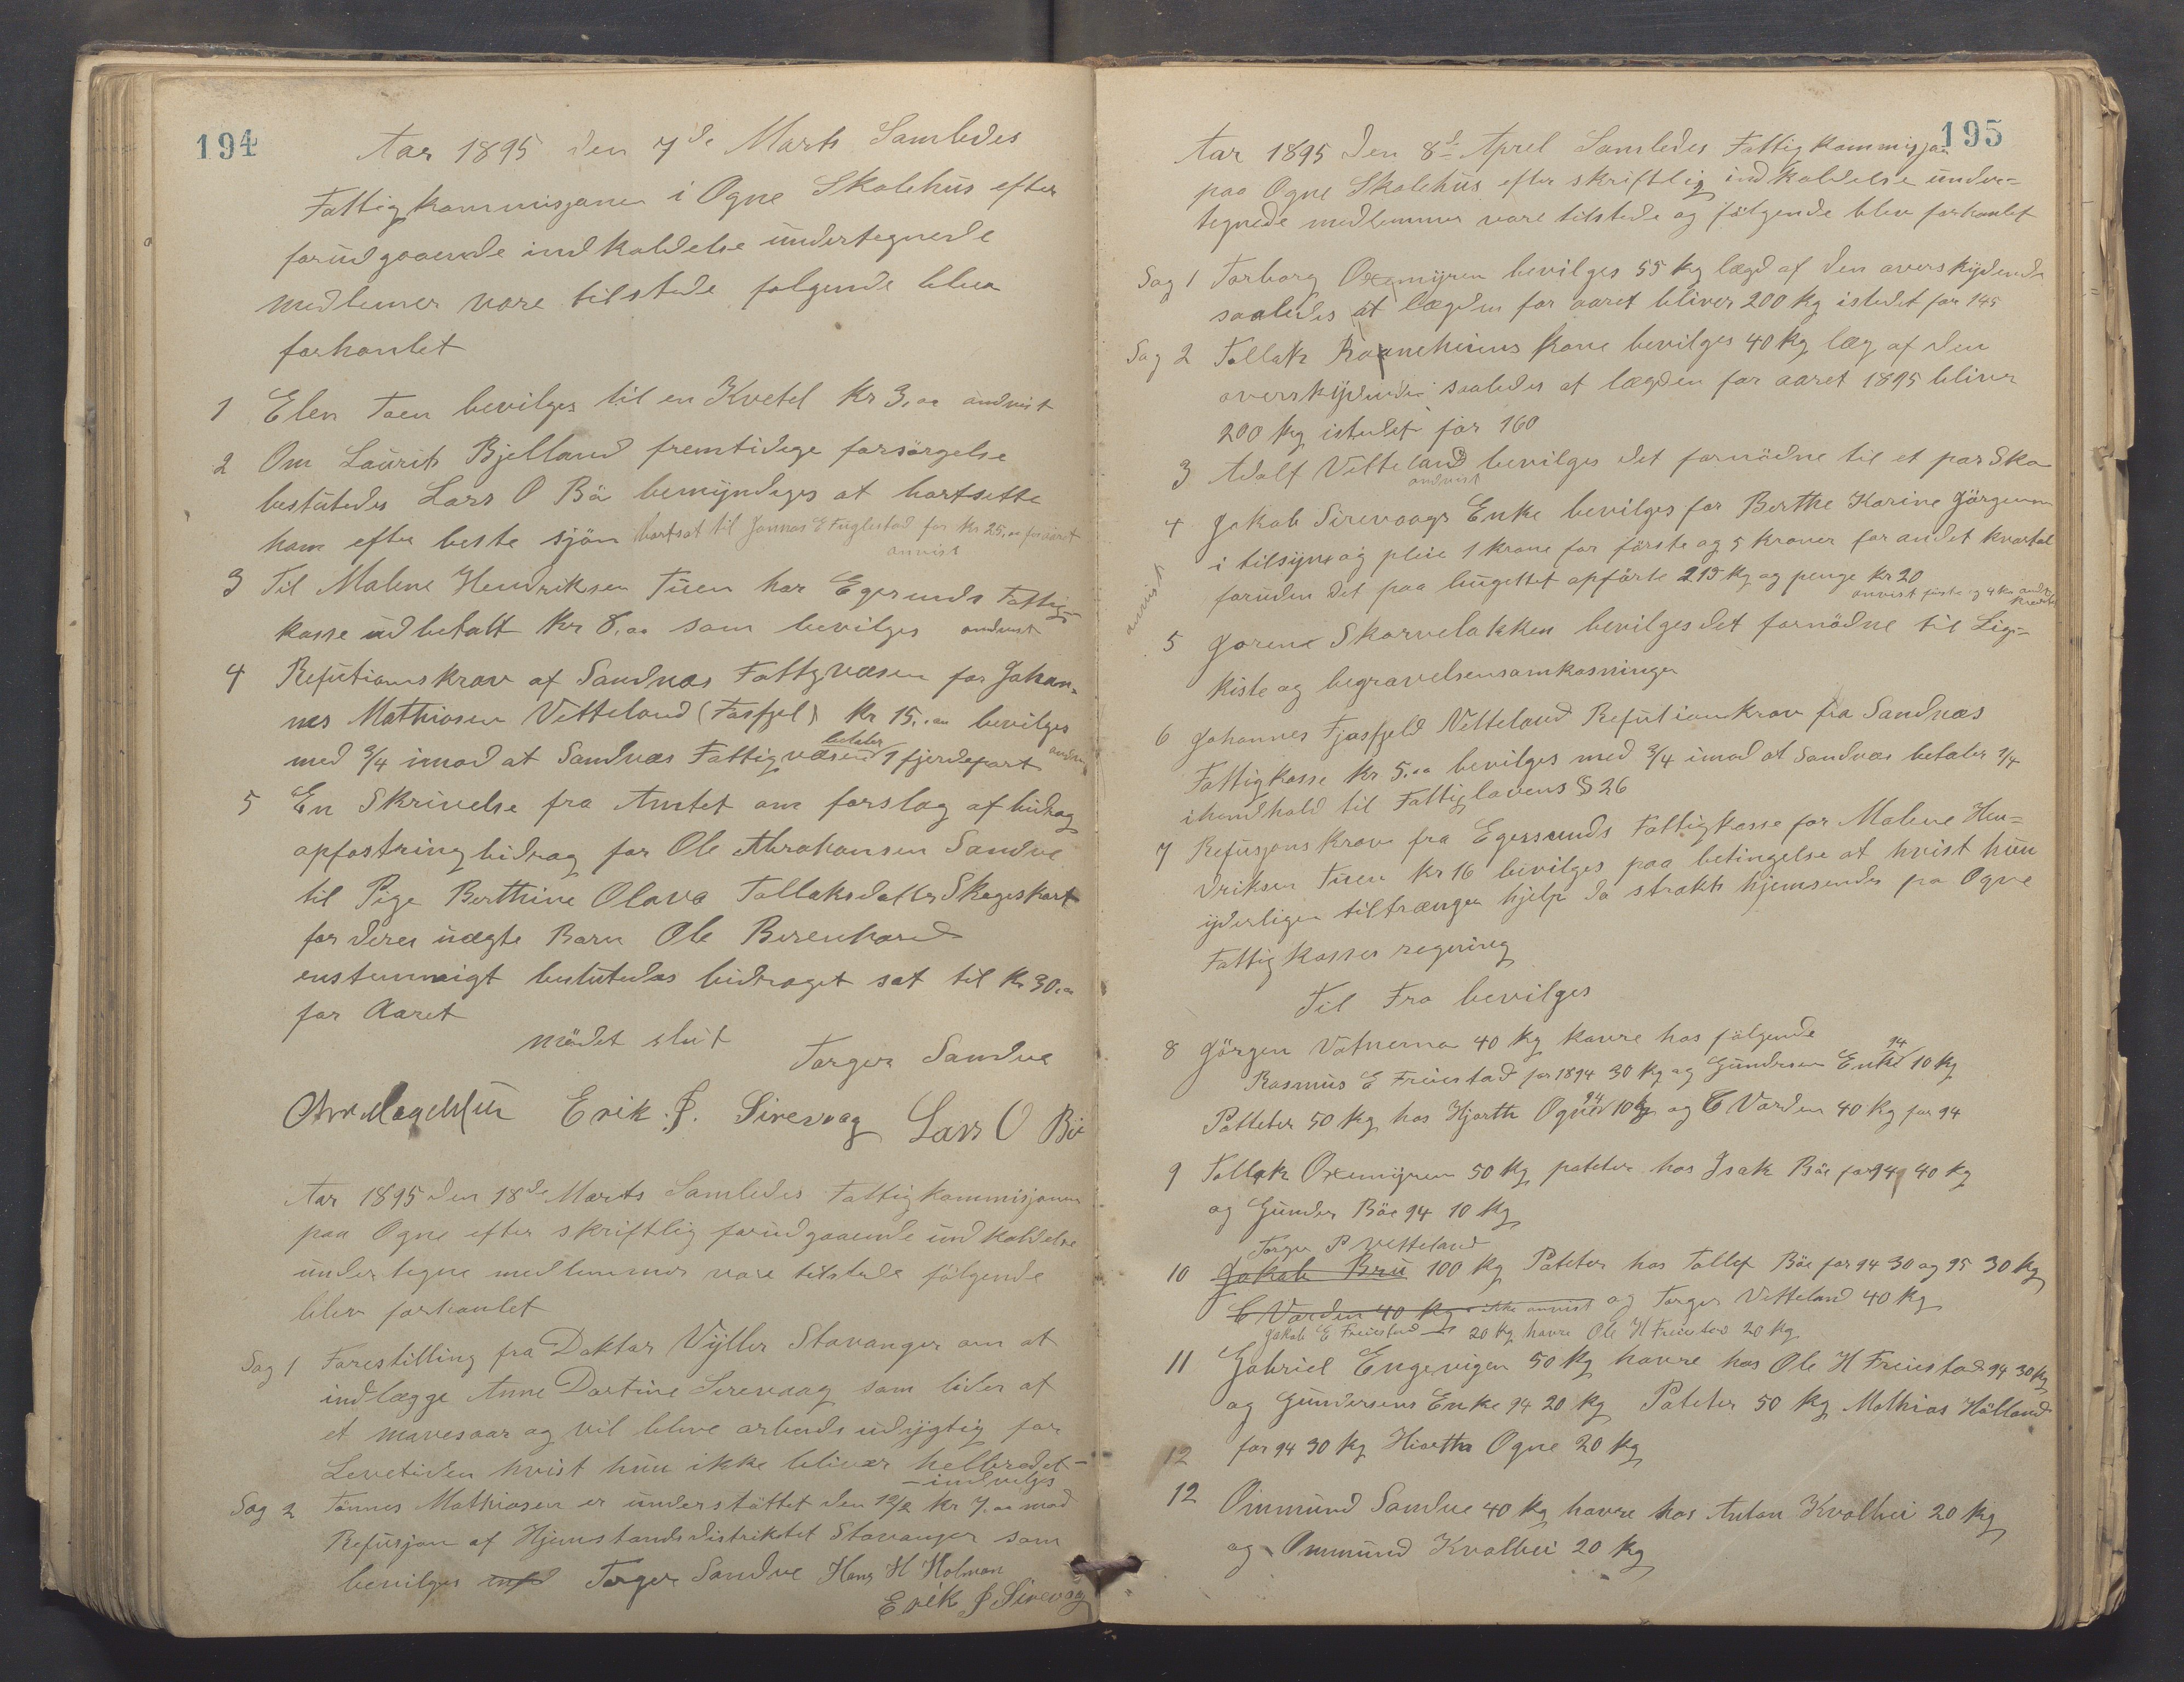 194
Aar 1895 den 7de Marts Samledes
Fattigkommisjonen i Ogne Skolehus efter
forudgaaende indkaldelse undertegnede
medlemer vare tilstede folgende blev
forhanlet
1 Elen Toen bevilges til en Kvetel Kr 3,00 andvist
2 Om Laurits Bjelland fremtidege forsörgelse
beslutedes Lars O Bö bemyndiges at bortsette
ham efter beste sjön bortsat til Jonnas E Fuglestad for Kr 25,00 for aaret
anvist
3 Til Malene Hendriksen Tuen har Egersunds Fattig-
kasse udbetalt Kr 8,00 som bevilges andvist
4 Refutionskrav af Sandnæs Fattgvæsen for Johan-
nes Mathiasen Vetteland (Fasfjel) Kr 15,00 bevilges
med 3/4 imod at Sandnæs Fattigvæsen betaler 1 fjerdepart andv
5 En Skrivelse fra Amtet om forslag af bidrag
opfostring bidrag for Ole Abrahansen Sandve
til Pige Berthine Olava Tollaksdatter Skageskart
for deres uægte Barn Ole Berenhard
enstemmigt beslutedes bidraget sat til Kr 30,00
for Aaret
mödet slut Torger Sandve
Erik. J. Sirevaag Lars O Bö
Aar 1895 den 18de Marts Samledes Fattigkommisjonen
paa Ogne efter skriftlig forudgaaende indkaldelse
undertegne medlemmer vare tilstede fölgende
blev forhanlet
Sag 1 Forestilling fra Doktor Vyller Stavanger om at
indlægge Anne Dortine Sirevaag som lider af
et mavesaar og vil blive arbeids udygtig for
Levetiden hvist hun ikke bliver helbredet-
-indvilges
Sag 2 Tönnes Mathiasen er understöttet den 12/2 Kr 7,00 mod
Refusjon af Hjemstandsdistriktet Stavanger som
bevilges Torger Sandve Hans H Holman
Erik J Sirevaag
195
Aar 1895 den 8de Aprel Samledes Fattigkommisjon
paa Ogne Skolehus efter skriftlig indkaldelse under=
tegnede medlemmer vare tilstede og fölgende blev forhanlet
Sag 1 Torborg Oxemyren bevilges 55 kg lægd af den overskydende
saaledes at lægden for aaret bliver 200 kg istedet for 145
Sag 2 Tollak kone bevilges 40 kg læg af den
overskydende saaledes at lægden for aaret 1895 bliver
200 kg istedet for 160
3 Adolf Vetteland bevilges det fornödne til et par Sko
andvist
4 Jakob Sirevaags Enke bevilges for Berthe Karine Jörgensen
i tilsyn og pleie 1 krone for förste og 5 kroner for andet kvartal
foruden det paa bugettet opförte 215 kg og penge Kr 20
anvist förste og 4 kr andet kvartal
anvist
5 Gorene Skarvelakken bevilges det fornödne til Lig-
kiste og begravelsensomkosninger
6 Johannes Fjasfjeld Vetteland Refutionkrav fra Sandnæs
Fattigkasse Kr 5,00 bevilges med 3/4 imod at Sandnæs betaler 1/4
ihendhold til Fattiglovens § 26
7 Refusjonskrav fra Egersunds Fattigkasse for Malene Hen=
driksen Tuen Kr 16 bevilges paa betingelse at hvist hun
yderligen tiltrænger hjelp da strakts hjemsendes paa Ogne
Fattigkasses regning
Til Fra bevilges
8 Jörgen Vatnemo 40 kg havre hos fölgende
Rasmus E Freiestad for 1894 30 kg og Gundersen Enke 94 10 kg
Potteter 50 kg hos Hjorth Ogne 94 10 kg og C Varden 40 kg for 94
9 Tollak Oxemyren 50 kg poteter hos Isak Böe for 94 40 kg
og Gunder Böe 94 10 kg
Torger P Vetteland
10 Jakob Bru 100 kg Poteter hos Tollef Böe for 94 30 og 95 30 kg
C Varden 40 kg ikke anvist og Torger Vetteland 40 kg
Jakob E Freiestad 20 kg havre Ole H Freiestad 20 kg
11 Gabriel Engevigen 50 kg havre hos Ole H Freiestad 94 30 kg
og Gundersens Enke 94 20 kg Poteter 50 kg Mathias Hölland
12 for 94 30 kg Hiorth Ogne 20 kg
12 Ommund Sandve 40 kg havre hos Anton Kvalhei 20 kg
og Ommund Kvalhei 20 kg